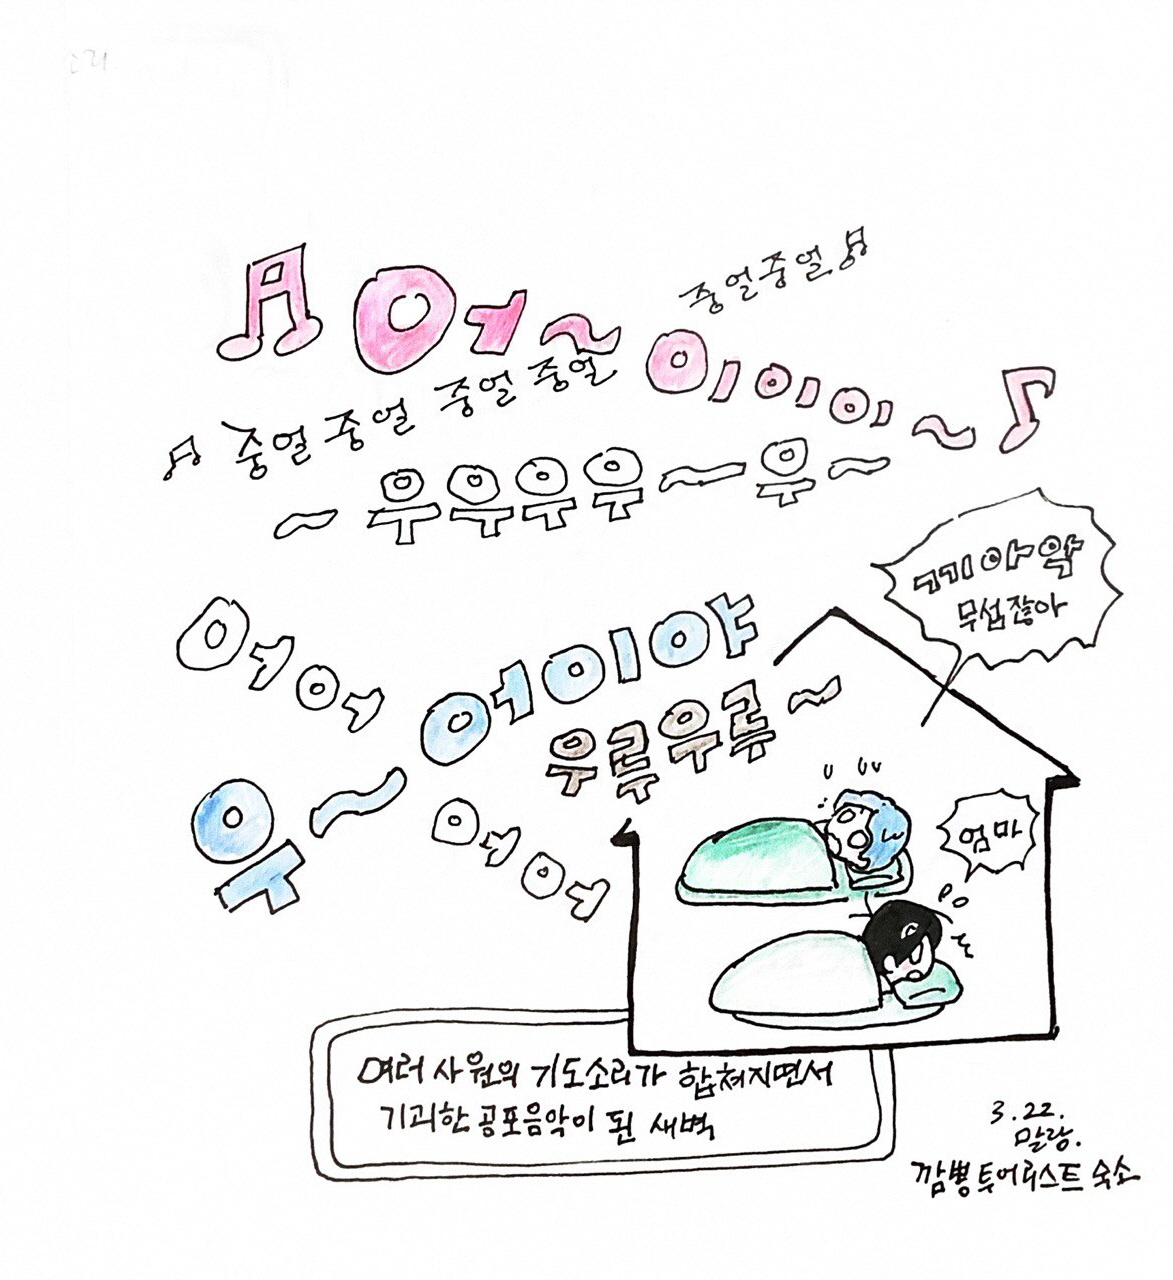 중얼중얼
어~이이이이~
중얼 중얼 중얼 중얼
~우우우우~우~
끼아악
무섭잖아
어어
우~어이야
우루우루~
어어
엄마
여러 사원의 기도소리가 합쳐지면서
기괴한 공포음악이 된 새벽
3.22.
말랑.
깜뽕 투어리스트 숙소